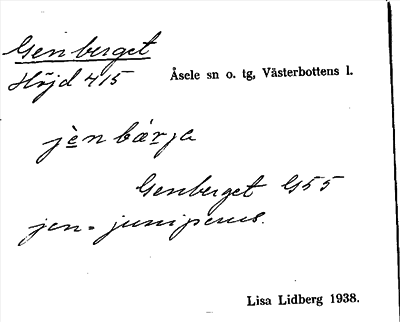 Genberget
Höjd 415
Åsele sn o. tg, Västerbottens l.
jènbærja
Genberget G55
jen = juniperus.
Lisa Lidberg 1938.